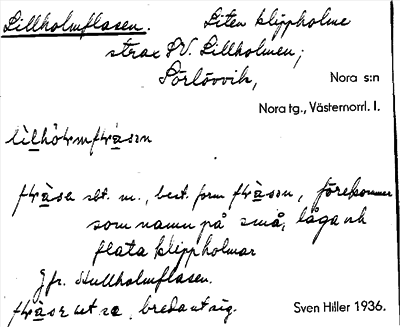 Lillholmflasen. Liten klippholme
strax SV. Lillholmen;
Sörlövvik, Nora s:n
Nora tg., Västernorrl. l.
sbt. m., best. form förekommer
som namn på små, låga och
flata klippholmar
Jfr. Hullholmflasen.
breda ut sig. Sven Hiller 1936.